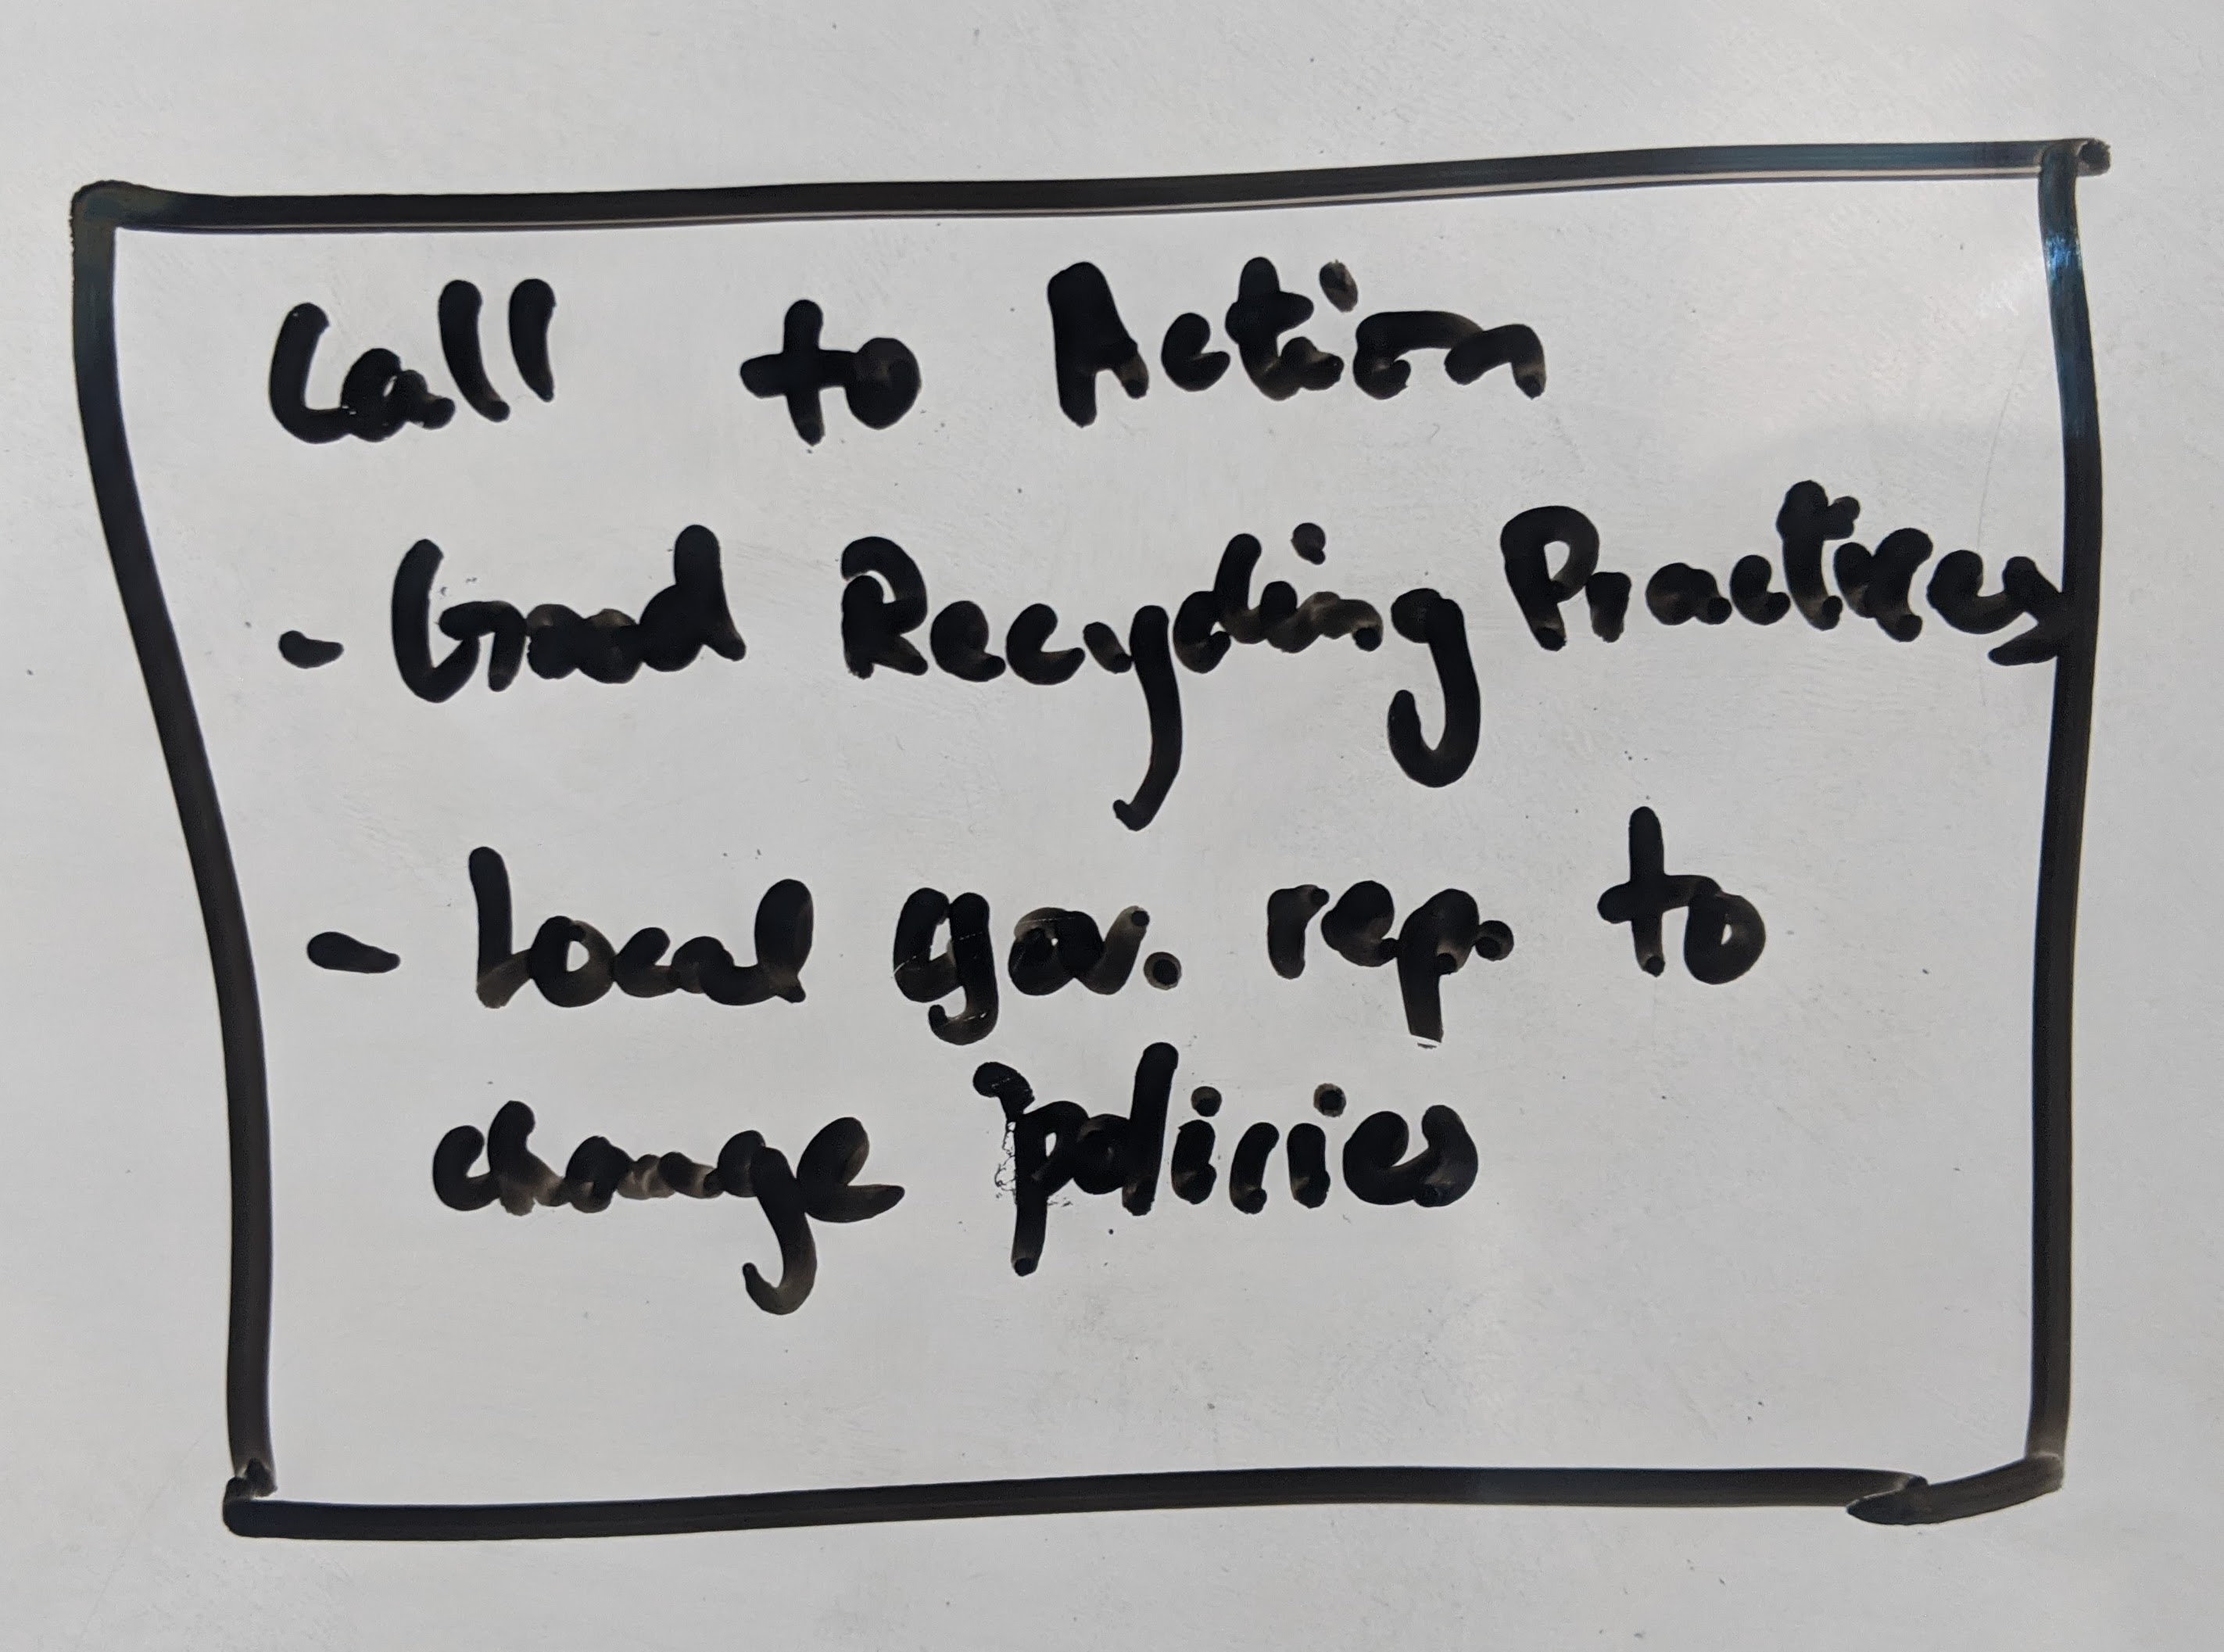 Call to Action
- Good Recycling Practices
- Local gov. rep. to
change policies